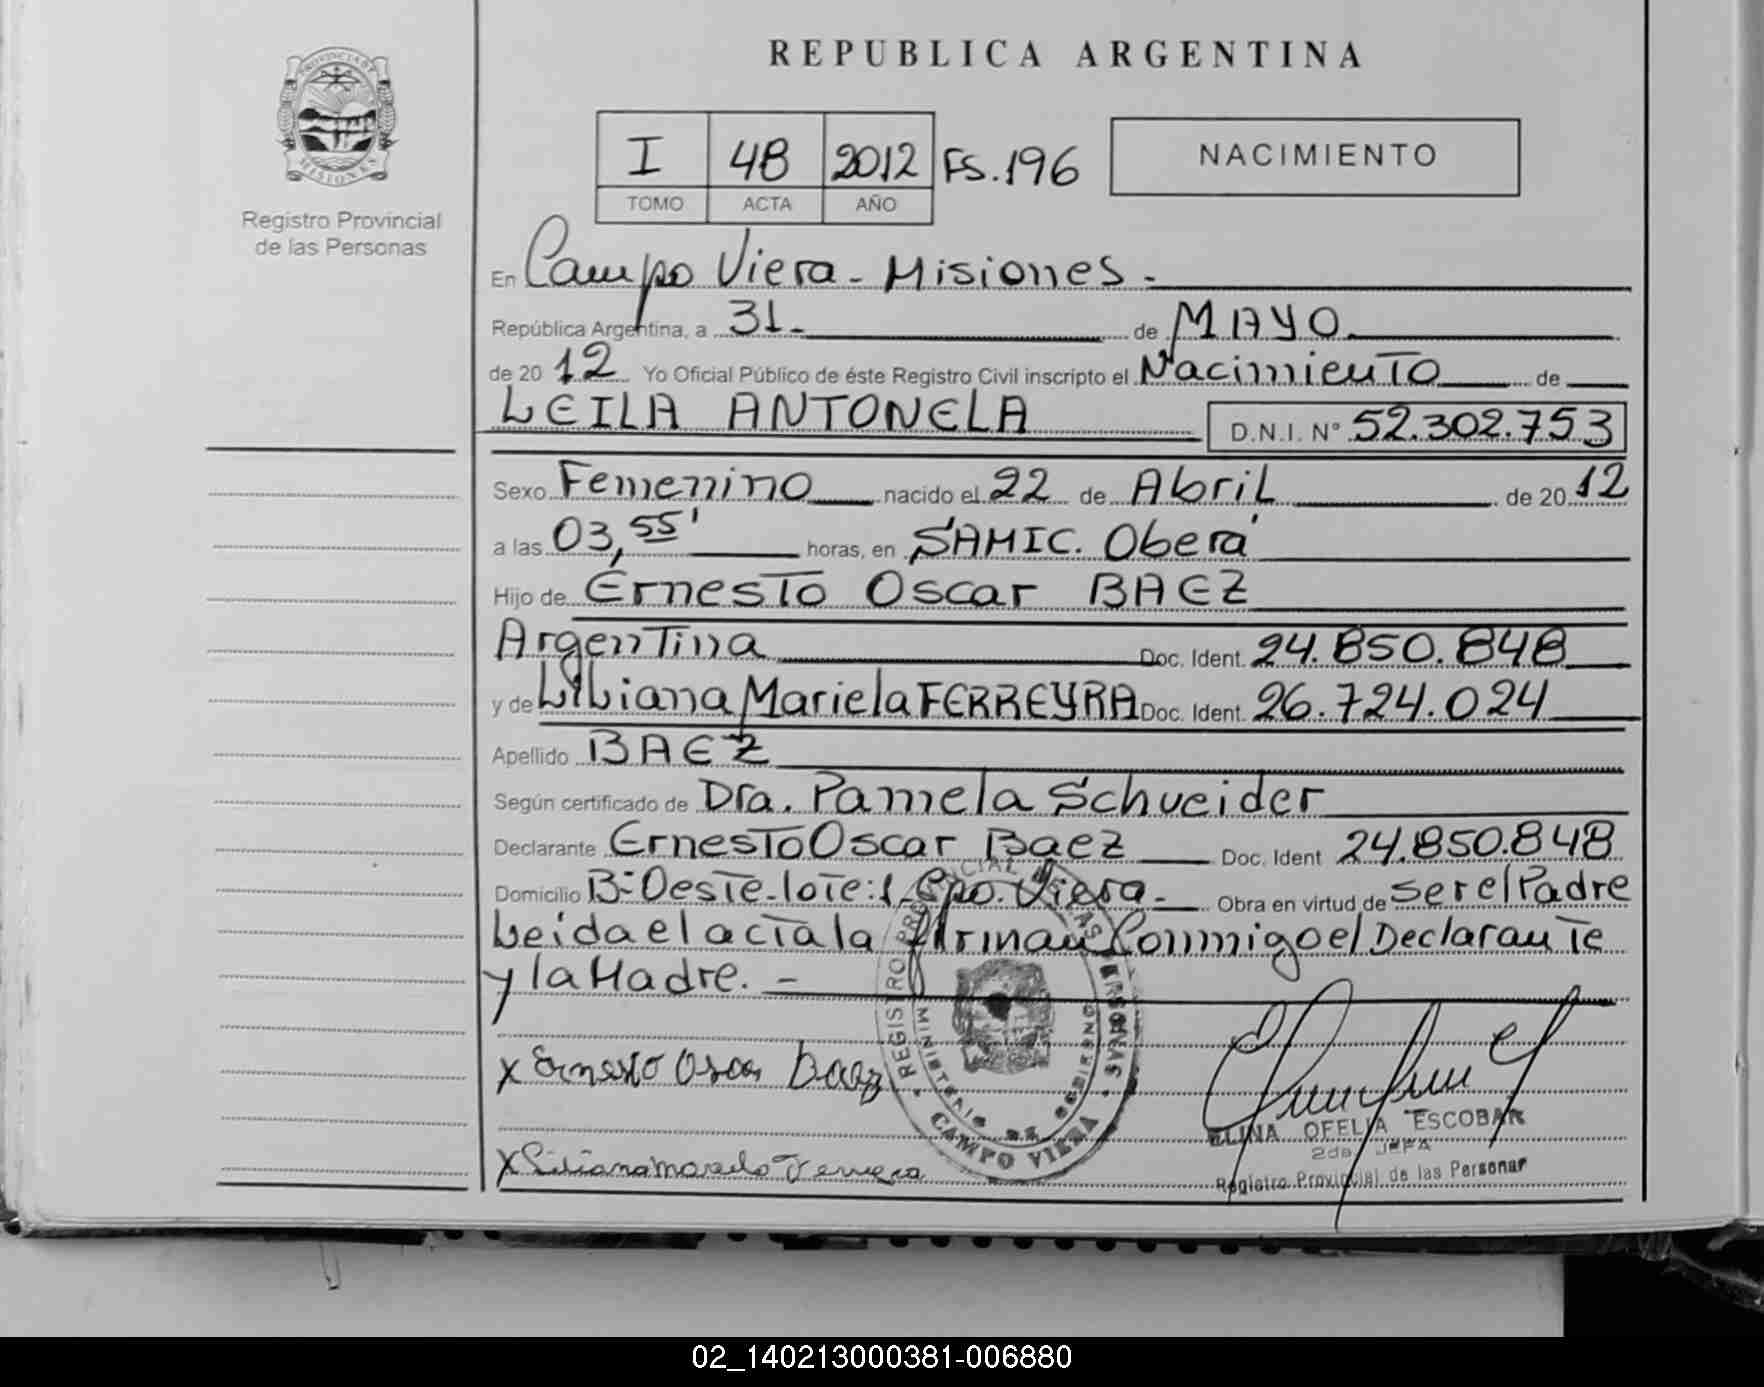 REPUBLICA ARGENTINA
PROVINCIA DE
MISIONES
Registro Provincial
de las Personas
I 48 2012 FS.196
TOMO ACTA AÑO
NACIMIENTO
En Campo Viera - Misiones -
República Argentina, a 31- de MAYO
de 20 12 Yo Oficial Público de éste Registro Civil inscripto el Nacimiento de
LEILA ANTONELA D.N.I. N° 52.302.753
Sexo Femenino nacido el 22 de Abril de 20 12
a las 03,55' horas, en SAMIC. Oberá
Hijo de Ernesto Oscar BAEZ
Argentina Doc. Ident. 24.850.848
y de Liliana Mariela FERREYRA Doc. Ident. 26.724.024
Apellido BAEZ
Según certificado de Dra. Pamela Schueider
Declarante Ernesto Oscar Baez Doc. Ident 24.850.848
Domicilio B- Oeste-lote:1-Cpo. Viera- Obra en virtud de ser el Padre
Leida el acta la firman Conmigo el Declarante
y la Madre. -
REGISTRO PROVINCIAL DE LAS PERSONAS
MINISTERIO DE GOBIERNO
CAMPO VIERA
X Ernesto Oscar Baez
ELINA OFELIA ESCOBAR
2da JEFA
Registro Provincial de las Personas
X Liliana
02_140213000381-006880